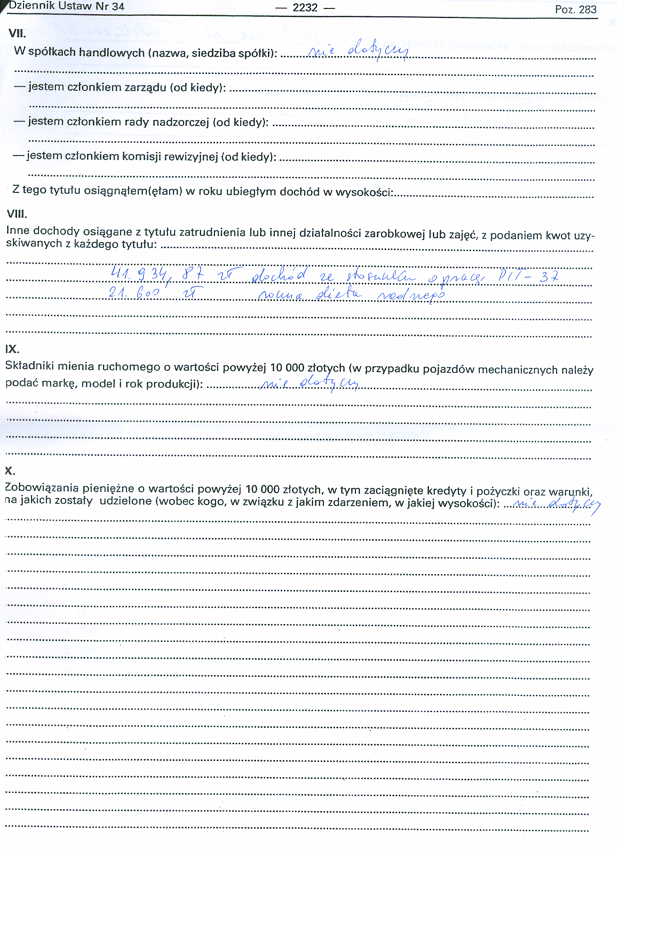 Dziennik Ustaw Nr 34 — 2232 — Poz. 283
VII.
W spółkach handlowych (nazwa, siedziba spółki): nie dotyczy
— jestem członkiem zarządu (od kiedy):
— jestem członkiem rady nadzorczej (od kiedy):
— jestem członkiem komisji rewizyjnej (od kiedy):
Z tego tytułu osiągnąłem(ęłam) w roku ubiegłym dochód w wysokości:
VIII.
Inne dochody osiągane z tytułu zatrudnienia lub innej działalności zarobkowej lub zajęć, z podaniem kwot uzy-
skiwanych z każdego tytułu:
41.934,87 zł dochód ze stosunku o pracę PIT-37
21.600 zł roczna dieta radnego
IX.
Składniki mienia ruchomego o wartości powyżej 10 000 złotych (w przypadku pojazdów mechanicznych należy
podać markę, model i rok produkcji): nie dotyczy
X.
Zobowiązania pieniężne o wartości powyżej 10 000 złotych, w tym zaciągnięte kredyty i pożyczki oraz warunki,
na jakich zostały udzielone (wobec kogo, w związku z jakim zdarzeniem, w jakiej wysokości): nie dotyczy